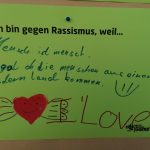 h bin gegen Rassismus, weil...
Mensch ist mensch.
egal ob die menschen aus einem
andern land kommen.
I Love